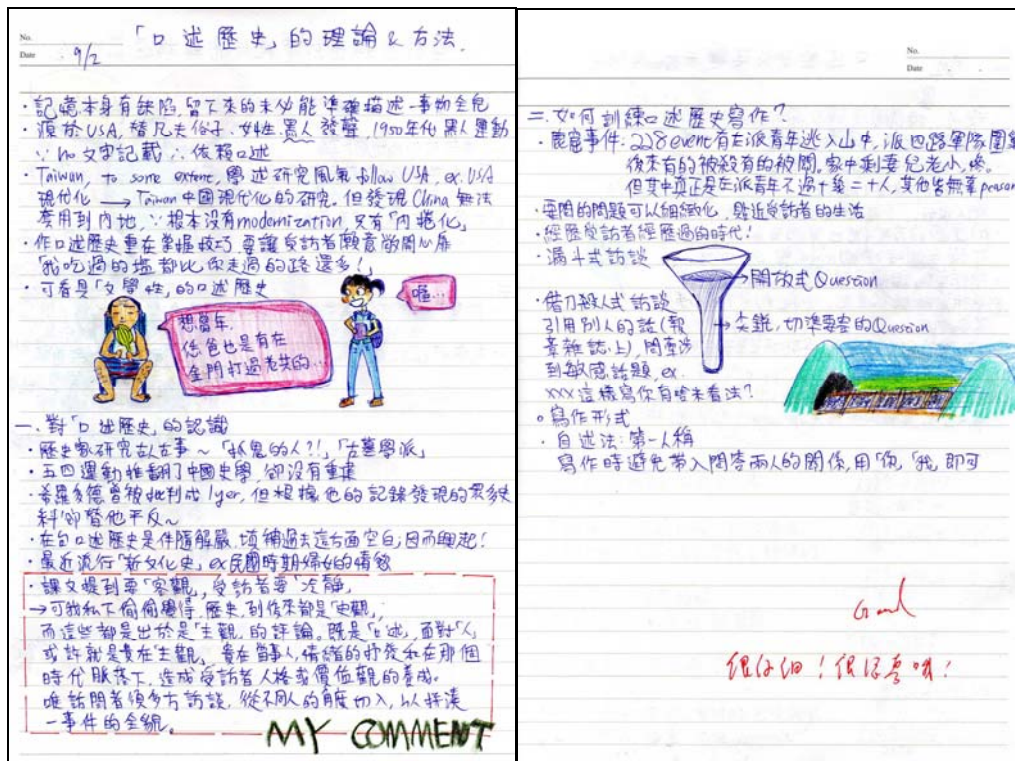 No.
Date 9/2
「口述歷史」的理論&方法.
・記憶本身有缺陷,留下來的未必能準確描述一事物全兒
・源於USA,替凡夫俗子、女性、黑人發聲,1950年代黑人運動
∵no文字記載∴依賴口述
・Taiwan, to some extent, 學述研究風氣follow USA, ex. USA
現代化→Taiwan中國現代化的研究。但發現China無法
套用到內地,∵根本沒有modernization,只有「內捲化」
・作口述歷史重在掌握技巧,要讓受訪者願意敞開心扉
「我吃過的塩都比你走過的路還多!」
・可看見「文學性」的口述歷史
想當年,
恁爸也是有在
金門打過老共的…
喔…
一.對「口述歷史」的認識
・歷史家研究古人古事~「抓鬼的人?!」「古墓學派」
・五四運動推翻了中國史學,卻沒有重建
・希羅多德曾被批判成lyer,但根據他的記錄發現的眾多史
料卻替他平反~
・在台口述歷史是伴隨解嚴,填補過去這方面空白,因而興起!
・最近流行「新文化史」ex民國時期婦女的情慾
・課文提到要「客觀」,受訪者要「冷靜」
→可我私下偷偷覺得,歷史,到後來都是「史觀」,
而這些都是出於是「主觀」的評論。既是「口述」,面對「人」
或許就是貴在主觀,貴在當事人,情緒的抒發和在那個
時代脈落下,造成受訪者人格或價值觀的養成。
唯訪問者須多方訪談,從不同人的角度切入,以拼湊
一事件的全貌。
MY COMMENT
No.
Date
二.如何訓練口述歷史寫作?
・鹿窟事件:228event有左派青年逃入山中,派四路軍隊圍
後來有的被殺有的被關。家中剩妻兒老小,唉。
但其中真正是左派青年不過十幾二十人,其他皆無辜peason
・要問的問題可以細緻化,貼近受訪者的生活
・經歷受訪者經歷過的時代!
・漏斗式訪談
→開放式Question
・借刀殺人式訪談
引用別人的話(報
章雜誌上),問牽涉
到敏感話題,ex.
xxx這樣寫你有啥未看法?
→尖銳,切準要害的Question
。寫作形式
・自述法:第一人稱
寫作時避免帶入問答兩人的關係,用「你」「我」即可
Good
很仔細!很認真哦!